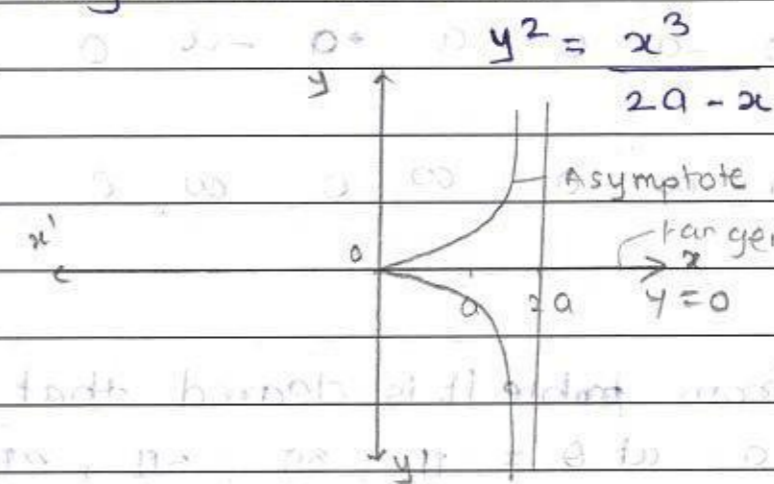 y² = x³ / 2a - x
y
Asymptote
x'
0
x
a
2a
y = 0
y'